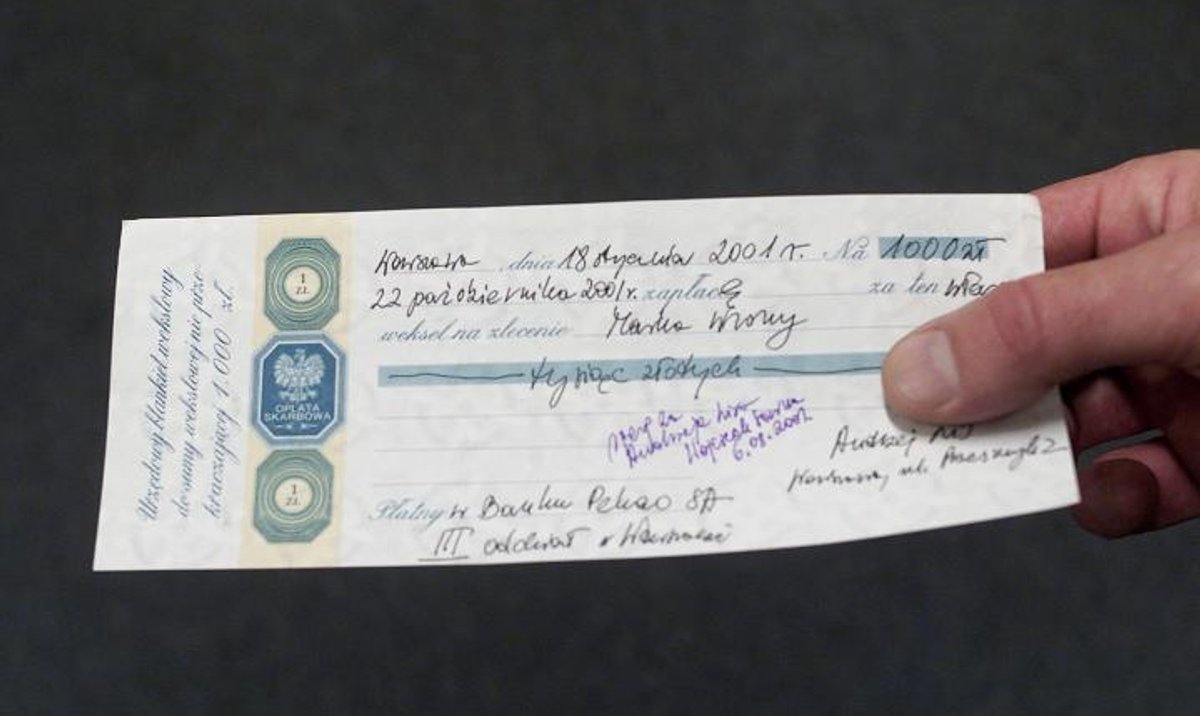 Urzędowy blankiet wekslowy
do sumy wekslowej nie prze-
kraczającej 1.000 zł.
1
ZŁ
OPŁATA
SKARBOWA
1
ZŁ
Warszawa, dnia 18 stycznia 2001 r. Na 1000 zł
22 października 2001 r. zapłacę za ten włas
weksel na zlecenie Marka Wrony
tysiąc złotych
6.08.2001
Andrzej
Warszawa, ul.
Płatny w Banku Pekao SA
III oddział w Warszawie